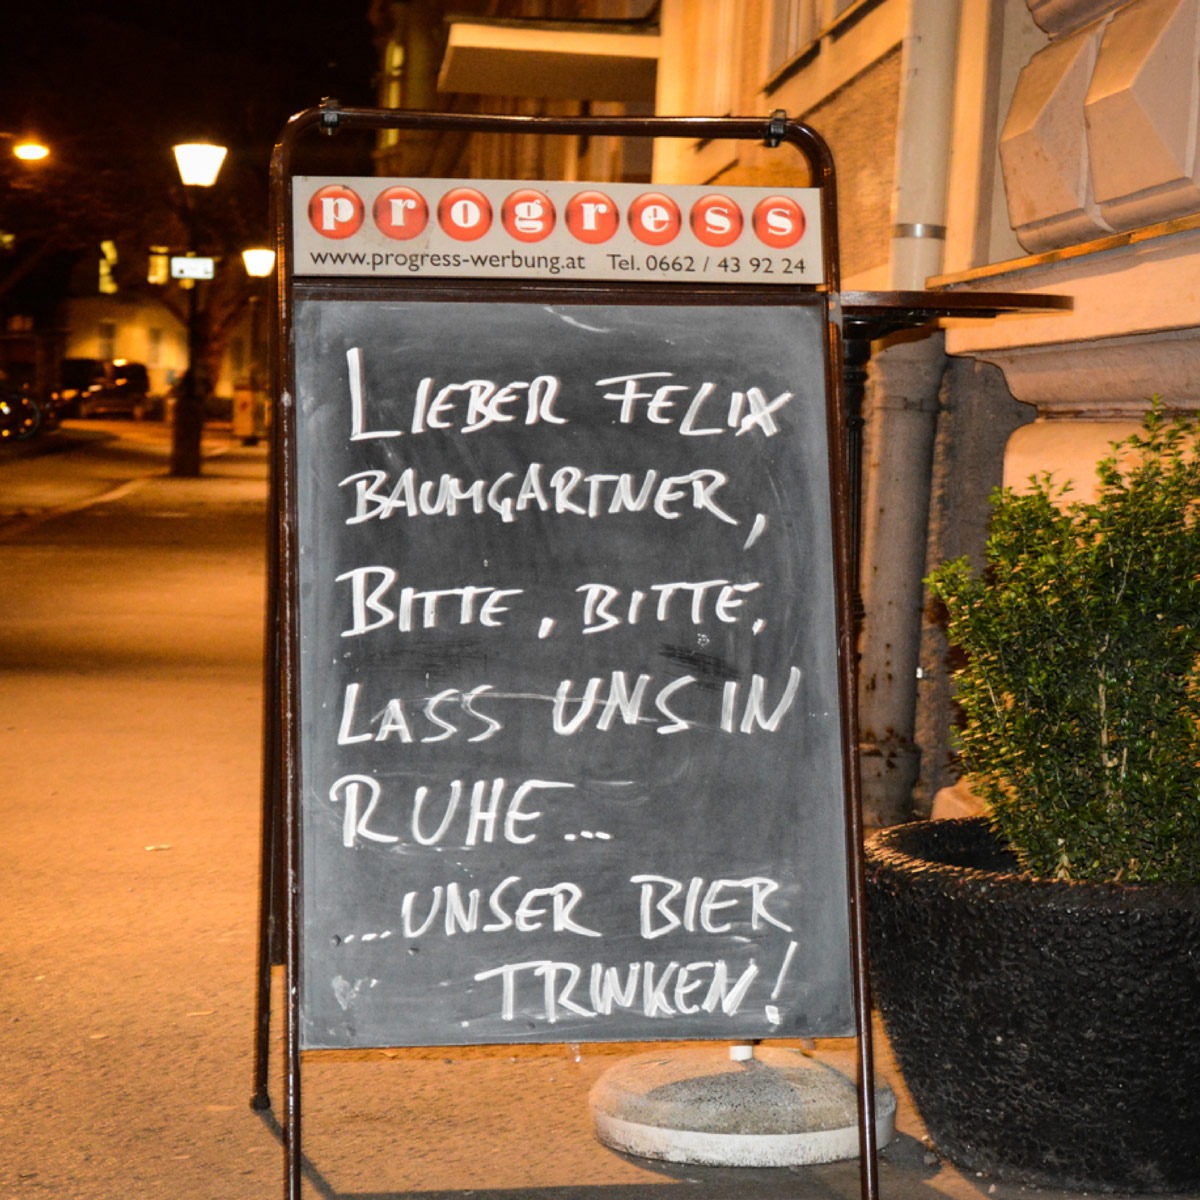 progress
www.progress-werbung.at Tel. 0662 / 43 92 24
LIEBER FELIX
BAUMGARTNER,
BITTE, BITTE,
LASS UNS IN
RUHE...
...UNSER BIER
TRINKEN!